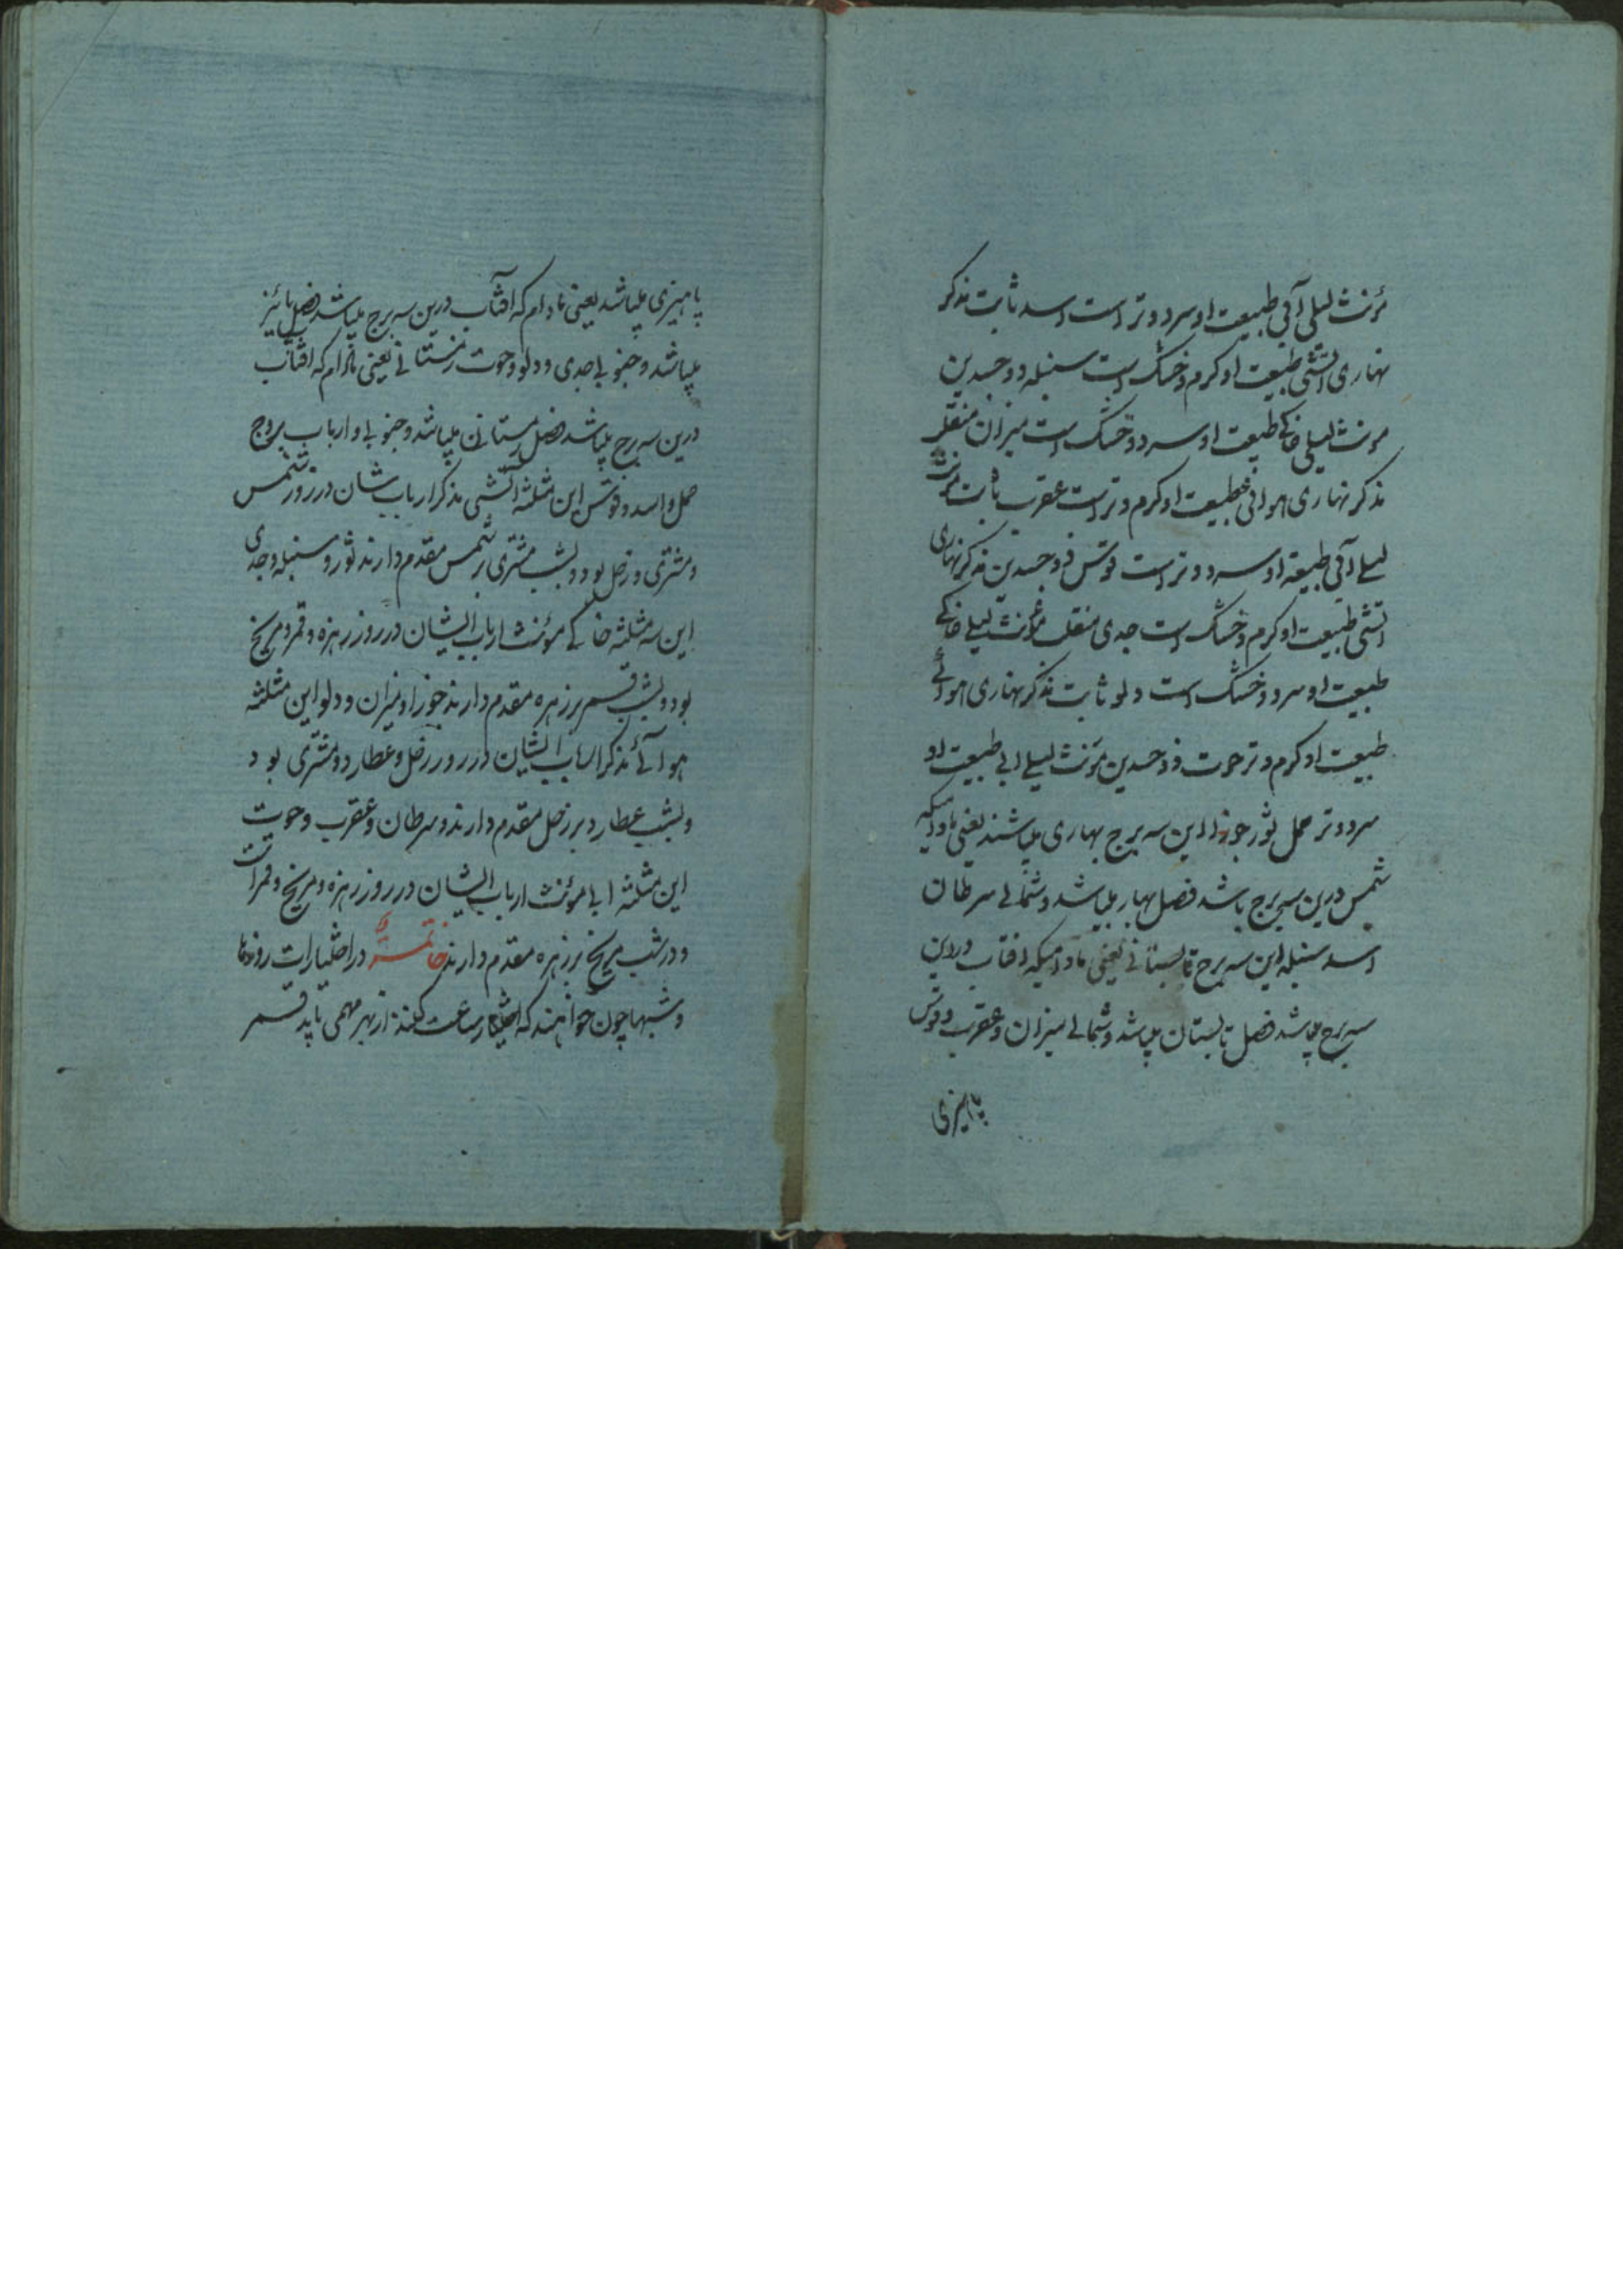 مؤنث لیلی آبی طبیعت او سرد و تر است اسد ثابت مذکر
نهاری اتشی طبیعت او کرم و خشک است سنبله ذو جسدین
مونث لیلی خاکے طبیعت او سرد و خشک است میزان منقلب
مذکر نهاری هوائی طبیعت او کرم و تر است عقرب ثابت مونث
لیلے آبی طبیعة او سرد و تر است قوس ذو جسدین مذکر نهاری
اتشی طبیعت او کرم و خشک است جدی منقلب مؤنث لیلے خاکے
طبیعت او سرد و خشک است دلو ثابت مذکر نهاری هوائے
طبیعت او کرم و تر حوت ذو جسدین مؤنث لیلے ابی طبیعت او
سرد و تر حمل ثور جوزا این سه برج بهاری میباشند یعنی مادامیکه
شمس درین سه برج باشد فصل بهار میباشد و شمالے سرطان
اسد سنبله این سه برج تابستانے یعنی مادامیکه افتاب درین
سه برج میباشد فصل تابستان میباشد و شمالے میزان و عقرب و قوس
پاهیزی
پاهیزی میباشد یعنی مادام که افتاب درین سه برج میباشد فصل پائیز
میباشد و جنوبے جدی و دلو و حوت زمستانے یعنی مادام که افتاب
درین سه برج میباشد فصل زمستان میباشد و جنوبے و ارباب بروج
حمل و اسد و قوس این مثلثه اتشی مذکر ارباب شان در روز شمس
و مشتری و زحل بود و بشب مشتری بر شمس مقدم دارند ثور و سنبله و جدی
این سه مثلثه خاکے موئنث ارباب ایشان در روز زهره و قمر و مریخ
بود و بشب قمر بر زهره مقدم دارند جوزا و میزان و دلو این مثلثه
هوائے مذکر ارباب ایشان در روز زحل و عطارد و مشتری بود
و بشب عطارد بر زحل مقدم دارند و سرطان و عقرب و حوت
این مثلثه ابے موئنث ارباب ایشان در روز زهره و مریخ و قمر است
و در شب مریخ بر زهره مقدم دارند خاتمه در اختیارات روزها
و شبها چون خواهند که اختیار ساعت کنند از بهر مهمی باید قمر